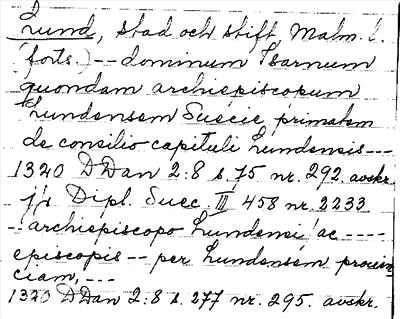 Lund, stad och stift, Malm. l.
(forts.) -- dominum Isarnum
quondam archiepiscopum
Lundensem Suecie primatem
de consilio capituli Lundensis ---
1320 DDan 2:8 s. 75 nr. 292. avskr.
jfr Dipl. Suec. III 458 nr. 2233
-- archiepiscopo Lundensi ac ----
episcopis -- per Lundensem provin
ciam, ---
1320 DDan 2:8 s. 277 nr. 295. avskr.